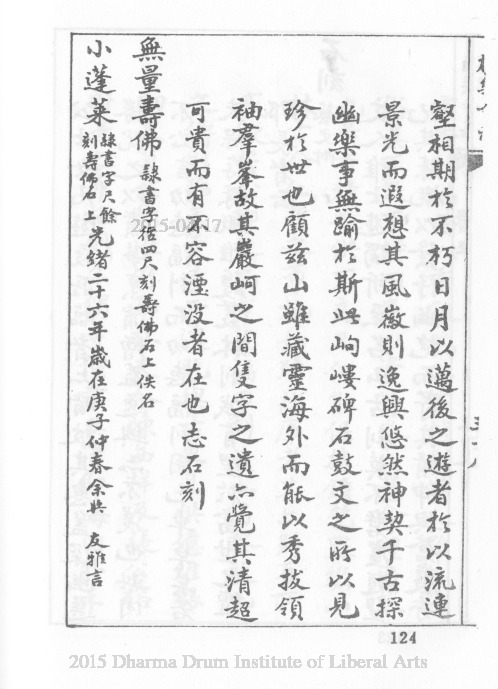 壑相期於不朽日月以邁後之遊者於以流連
景光而遐想其風徽則逸興悠然神契千古探
幽樂事無踰於斯此岣嶁碑石鼓文之所以見
珍於世也顧茲山雖藏靈海外而能以秀拔領
袖羣峯故其巖岣之間隻字之遺亦覺其清超
可貴而有不容湮沒者在也志石刻
無量壽佛 隸書字徑四尺刻壽佛石上佚名
小蓬萊 隸書字尺餘
刻壽佛石上光緒二十六年歲在庚子仲春余與 友雅言
2015-02-17
124
2015 Dharma Drum Institute of Liberal Arts